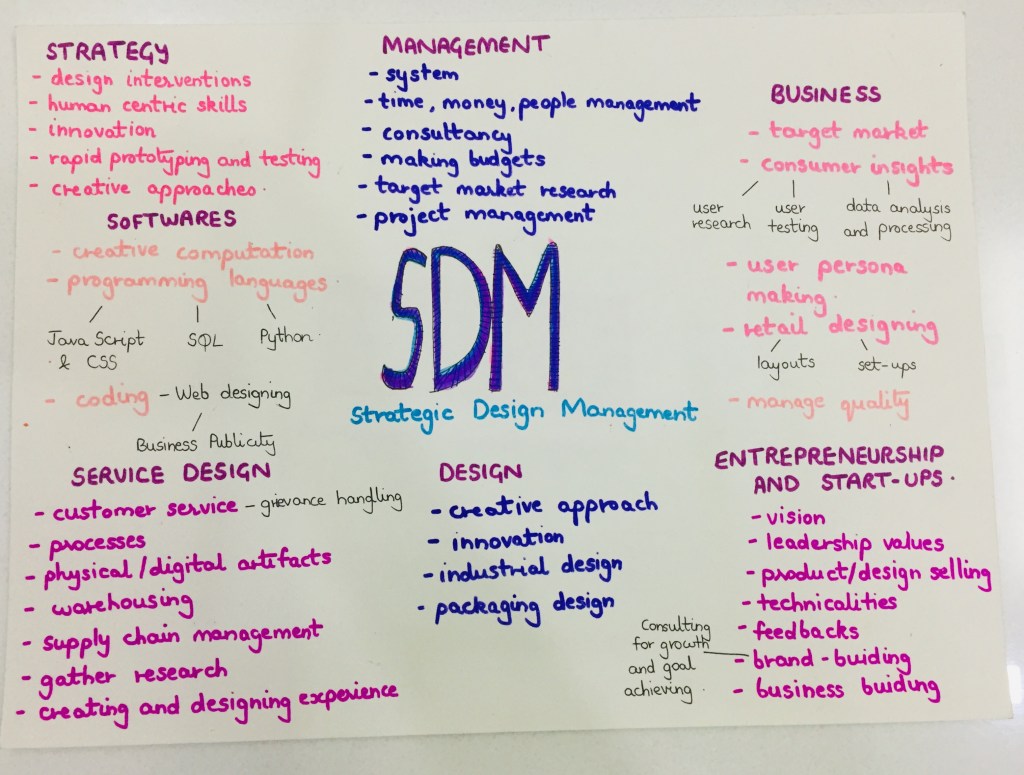 STRATEGY
- design interventions
- human centric skills
- innovation
- rapid prototyping and testing
- creative approaches.
SOFTWARES
- creative computation
- programming languages.
Java Script
& CSS
SQL
Python.
- coding - Web designing
Business Publicity
MANAGEMENT
- system
- time, money, people management
- consultancy
- making budgets
- target market research
- project management
BUSINESS
- target market
- consumer insights
user
research
user
testing
data analysis
and processing
- user persona
making.
- retail designing
layouts
set-ups
- manage quality
SDM
Strategic Design Management
SERVICE DESIGN
- customer service - grievance handling
- processes
- physical/digital artifacts
- warehousing
- supply chain management
- gather research
- creating and designing experience
DESIGN
- creative approach
- innovation
- industrial design
- packaging design
ENTREPRENEURSHIP
AND START-UPS.
- vision
- leadership values
- product/design selling
- technicalities
- feedbacks
- brand-buiding
- business buiding
Consulting
for growth
and goal
achieving.